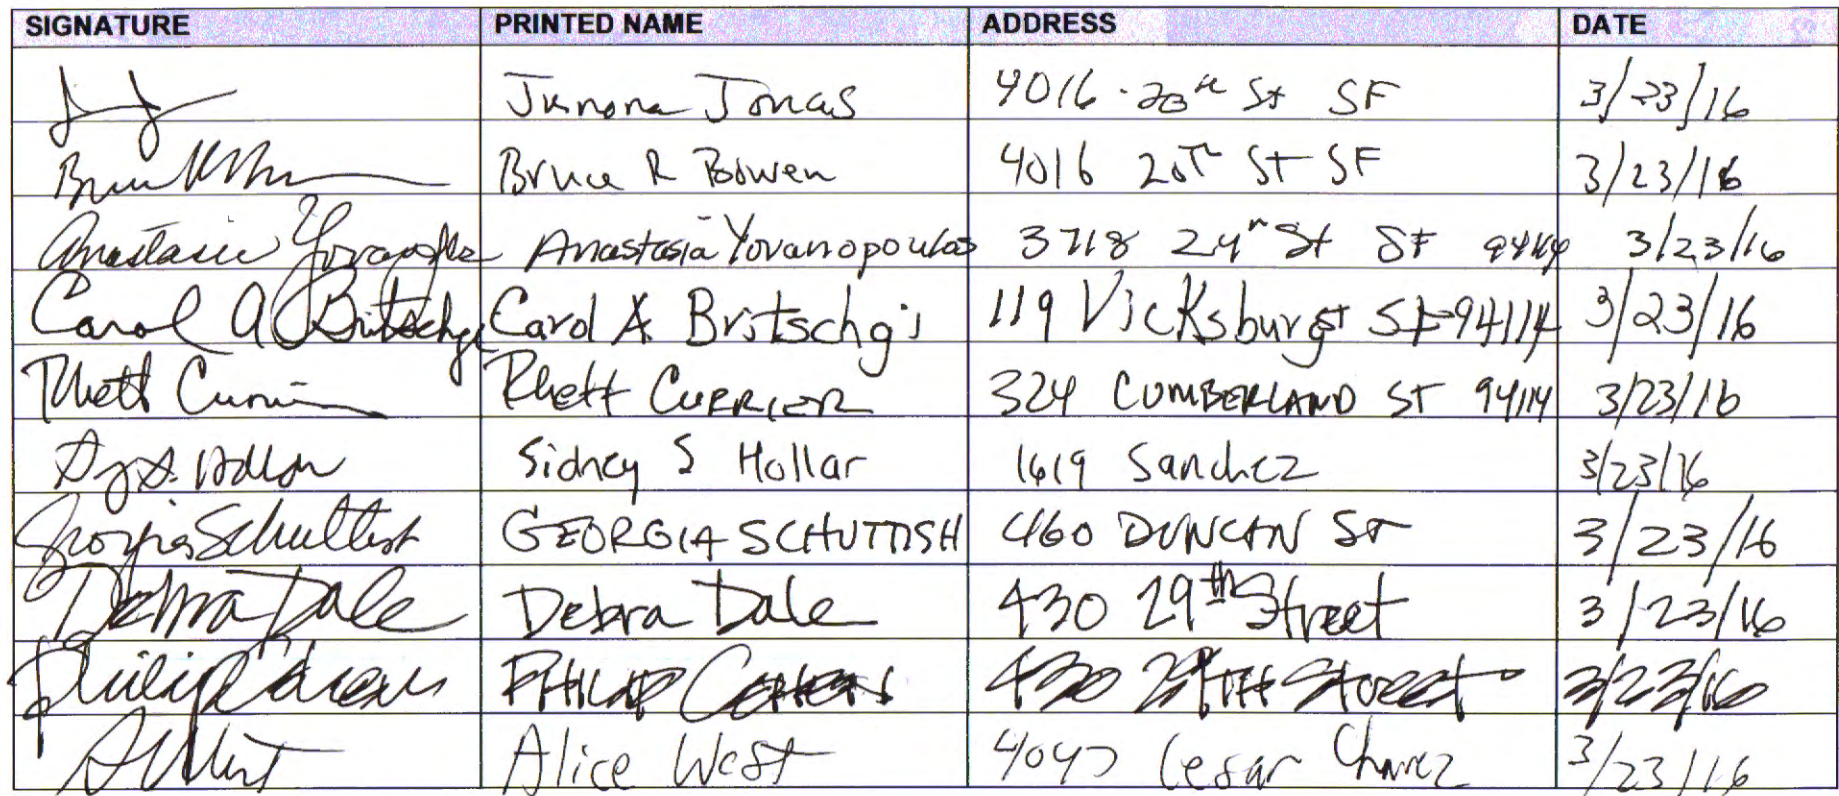 SIGNATURE PRINTED NAME ADDRESS DATE
Junona Jonas 4016 - 20th St SF 3/23/16
Bruce R Bowen 4016 20TH ST SF 3/23/16
Anastasia Yovanopoulos 3718 24th St SF 94114 3/23/16
Carol A Britschgi Carol A Britschgi 119 Vicksburg St 94114 3/23/16
Rhett Currier Rhett CURRIER 324 CUMBERLAND ST 94114 3/23/16
Sidney S Hollar 1619 Sanchez 3/23/16
Georgia Schuttish GEORGIA SCHUTTISH 460 DUNCAN ST 3/23/16
Debra Dale Debra Dale 430 29th Street 3/23/16
Philip PHILIP 430 29TH Street 3/23/16
Alice West 4047 Cesar Chavez 3/23/16